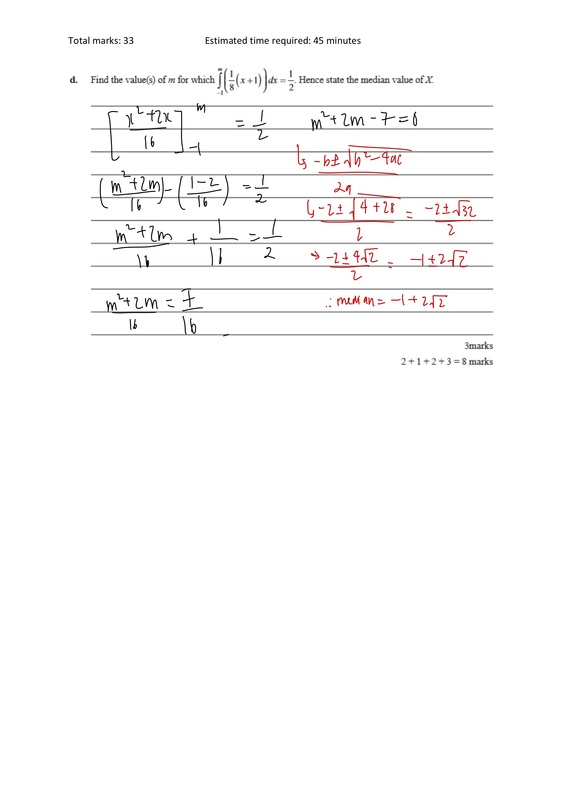 Total marks: 33 Estimated time required: 45 minutes
d. Find the value(s) of m for which ∫₋₁ᵐ (1/8 (x+1)) dx = 1/2. Hence state the median value of X.
[(x²+2x)/16]₋₁ᵐ = 1/2
((m²+2m)/16) - ((1-2)/16) = 1/2
(m²+2m)/16 + 1/16 = 1/2
(m²+2m)/16 = 7/16
m²+2m-7=0
↳ (-b±√(b²-4ac))/2a
↳ (-2±√(4+28))/2 = (-2±√32)/2
→ (-2±4√2)/2 = -1±2√2
∴ median = -1+2√2
3marks
2 + 1 + 2 + 3 = 8 marks